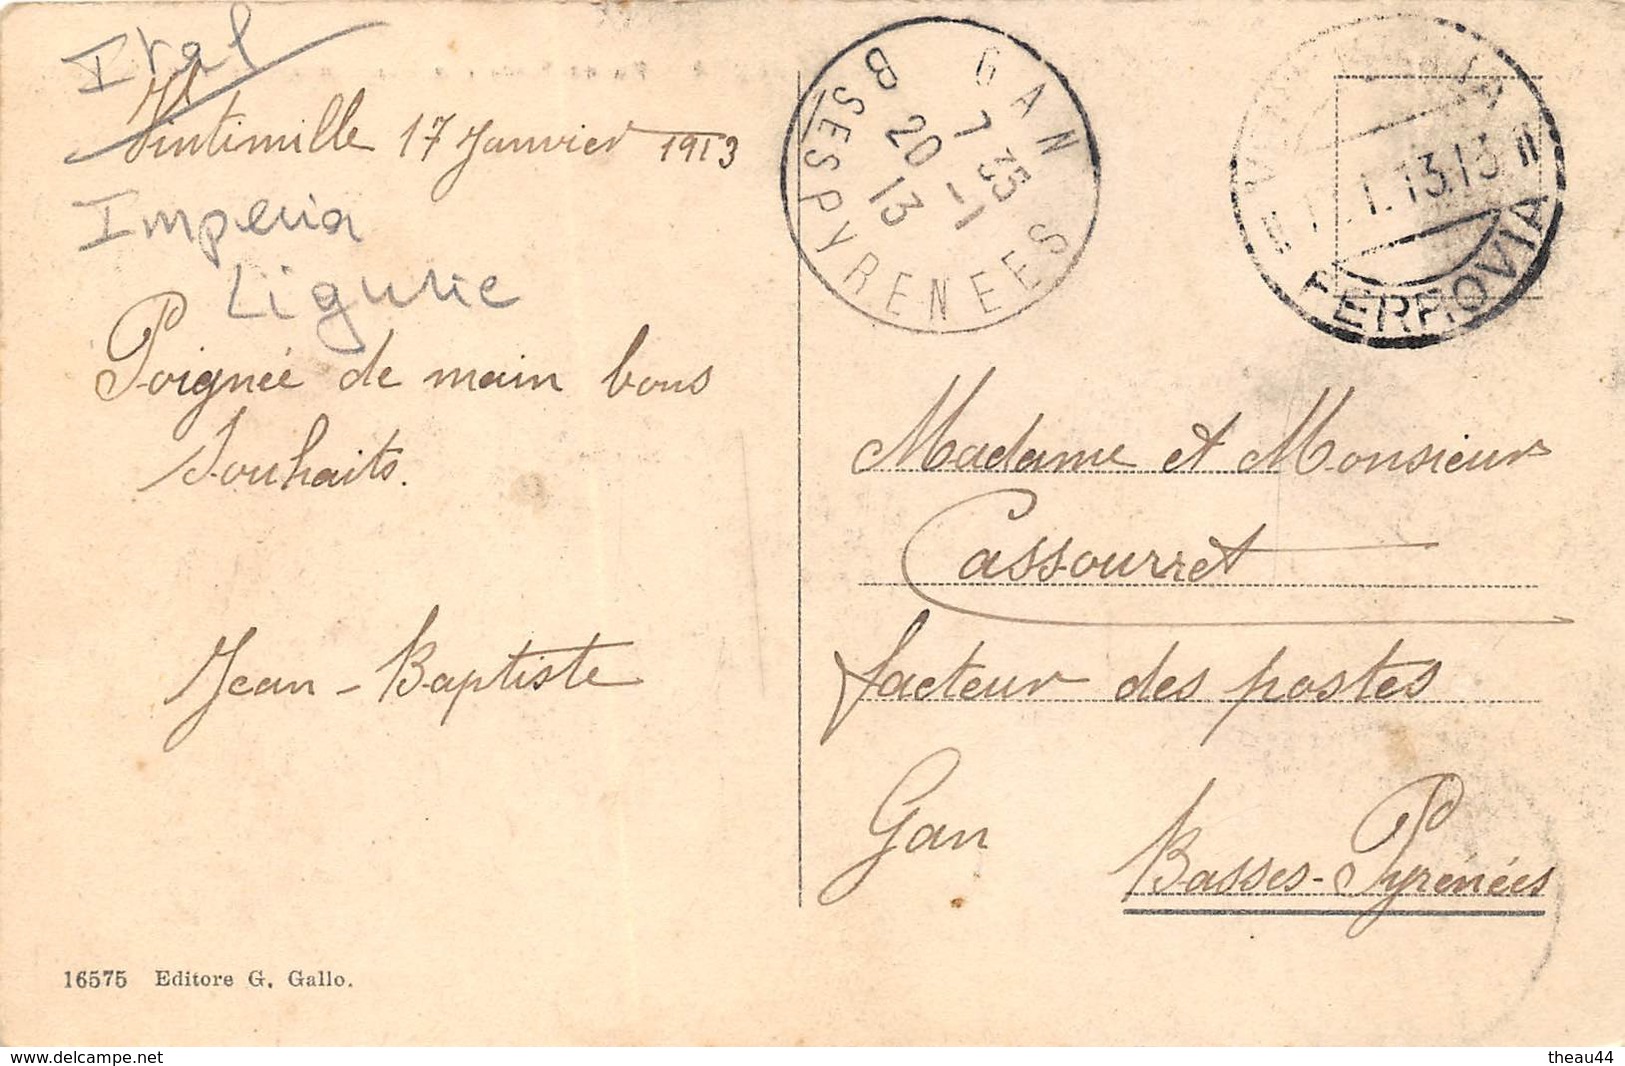 Ital
Vintimille 17 Janvier 1913
Imperia
Ligurie
Poignée de main bons
Souhaits.
Jean-Baptiste
16575 Editore G. Gallo.
GAN
7 35
20 -1
13
BSES PYRENEES
FERROVIA
Madame et Monsieur
Cassourret
facteur des postes
Gan
Basses-Pyrénées
www.delcampe.net
theau44